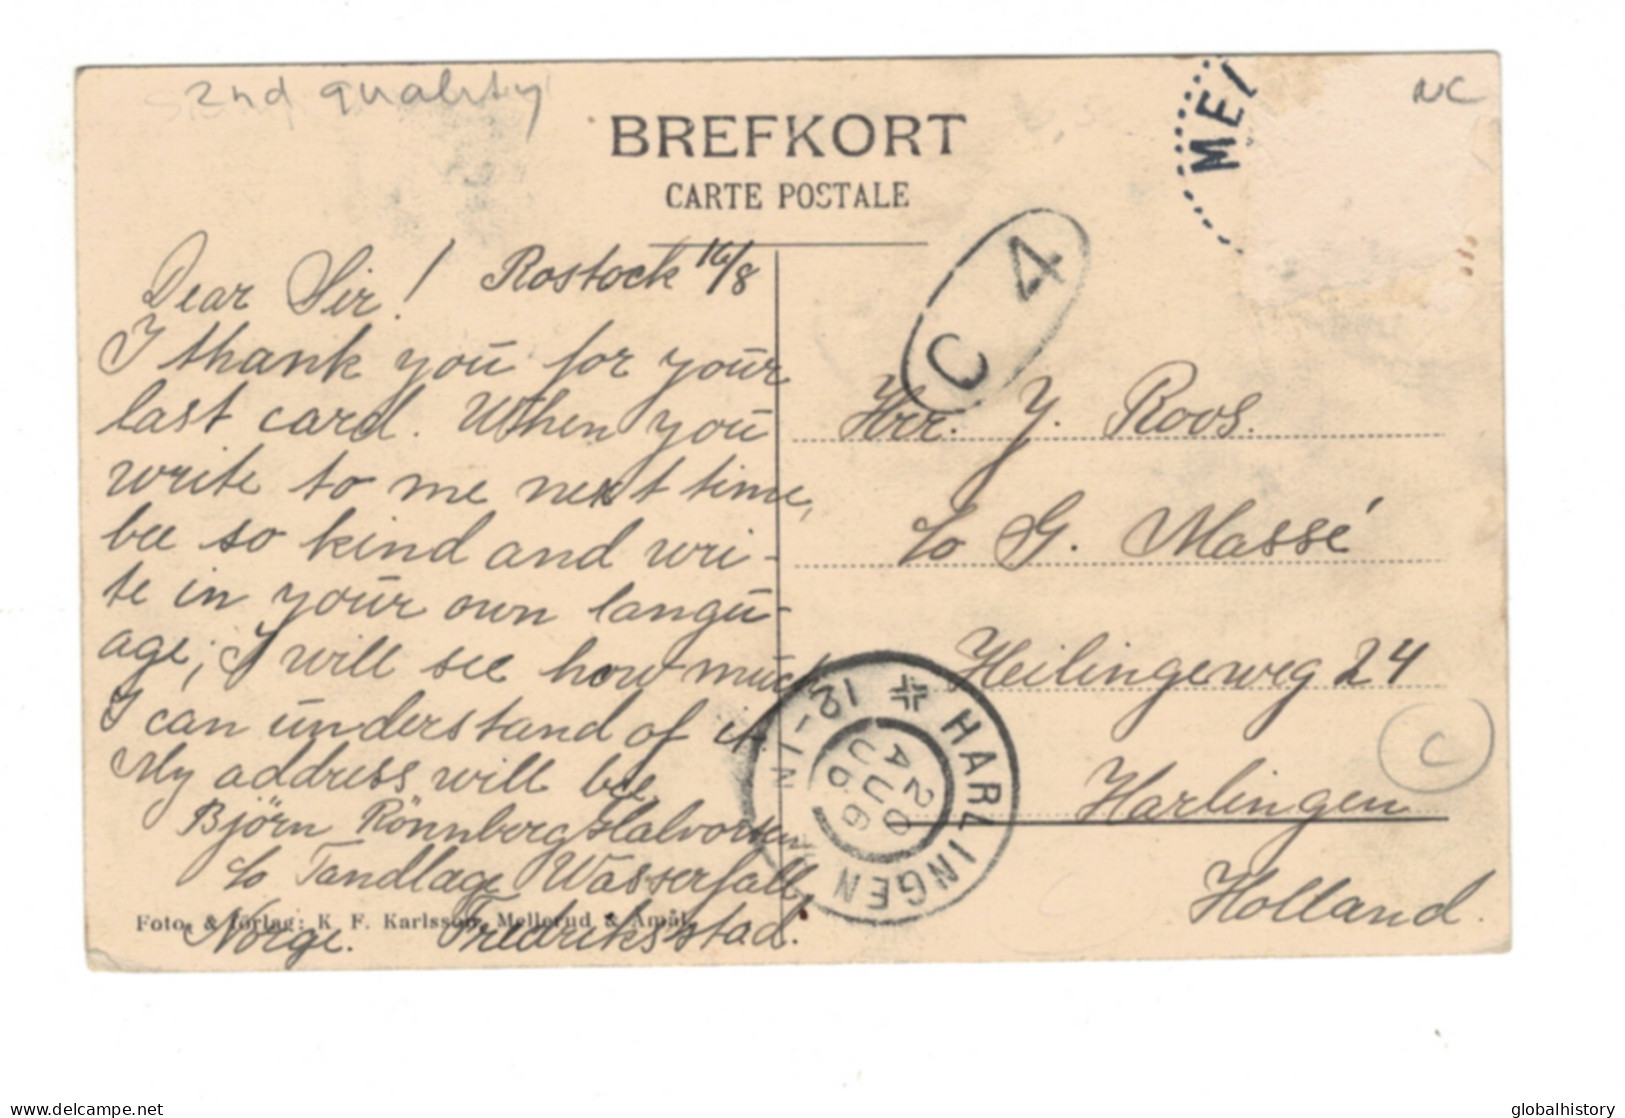 2nd quality
NC
BREFKORT
CARTE POSTALE
ME
C 4
Rostock 16/8
Dear Sir!
I thank you for your
last card. When you
write to me next time,
bee so kind and wri-
te in your own langu-
age; I will see how much
I can understand of it.
My address will be
Björn Rönnberg Halvorsen
c/o Tandlæge Wasserfall,
Norge. Fredriksstad.
Foto. & förlag: K. F. Karlsson, Mellerud & Åmål.
Hrr. J. Roos.
c/o G. Massé
Heilingeweg 24
Harlingen
Holland.
HARLINGEN
12-1N
20
AUG
06
C
www.delcampe.net
globalhistory